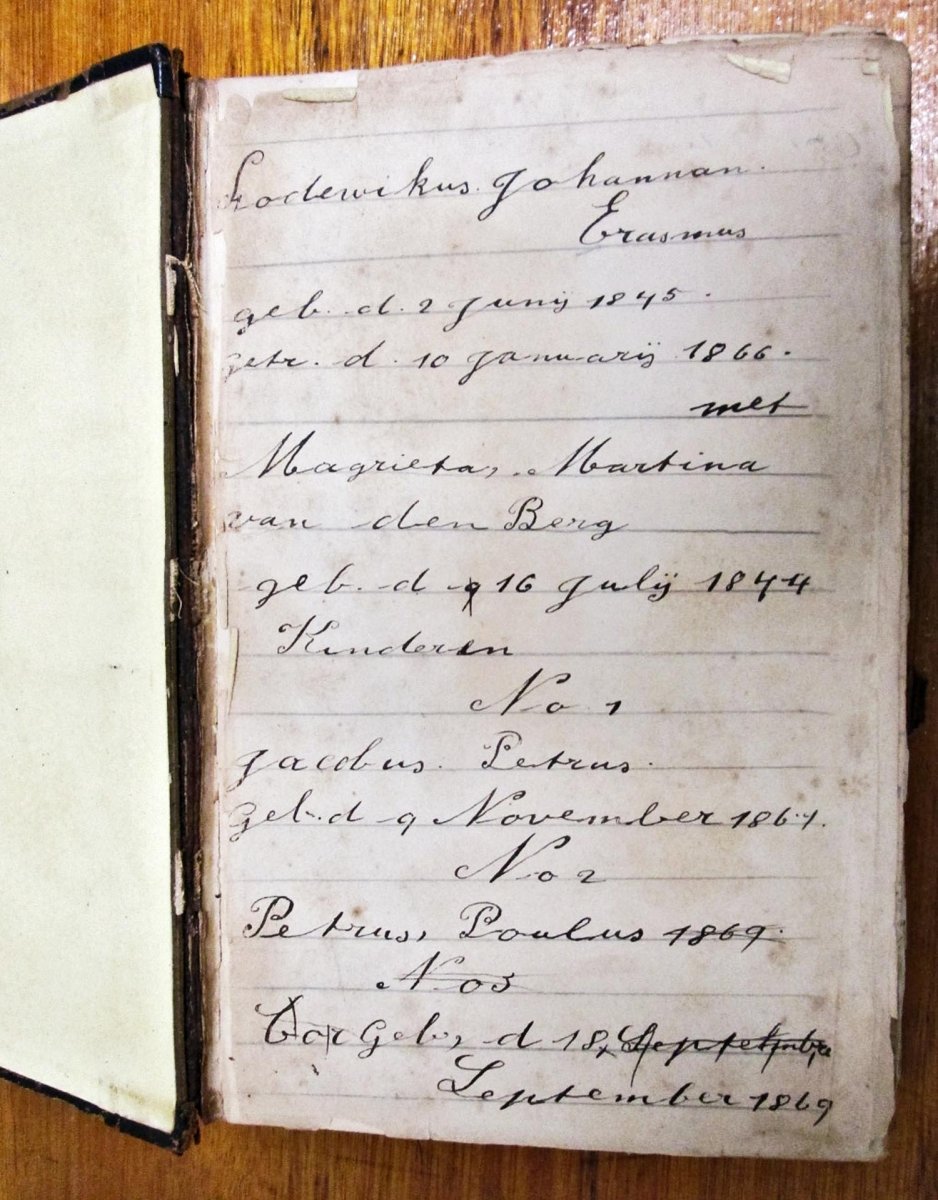 Lodewikus. Johannan.
Erasmus
geb. d. 2 Junij 1845.
getr. d. 10 Januarij 1866.
met
Magrieta, Martina
van den Berg
geb. d 16 Julij 1844
Kinderen
No 1
Jacobus. Petrus.
Geb. d 9 November 1867.
No 2
Petrus, Poulus 1869.
No 3
Geb, d 18, September
September 1869